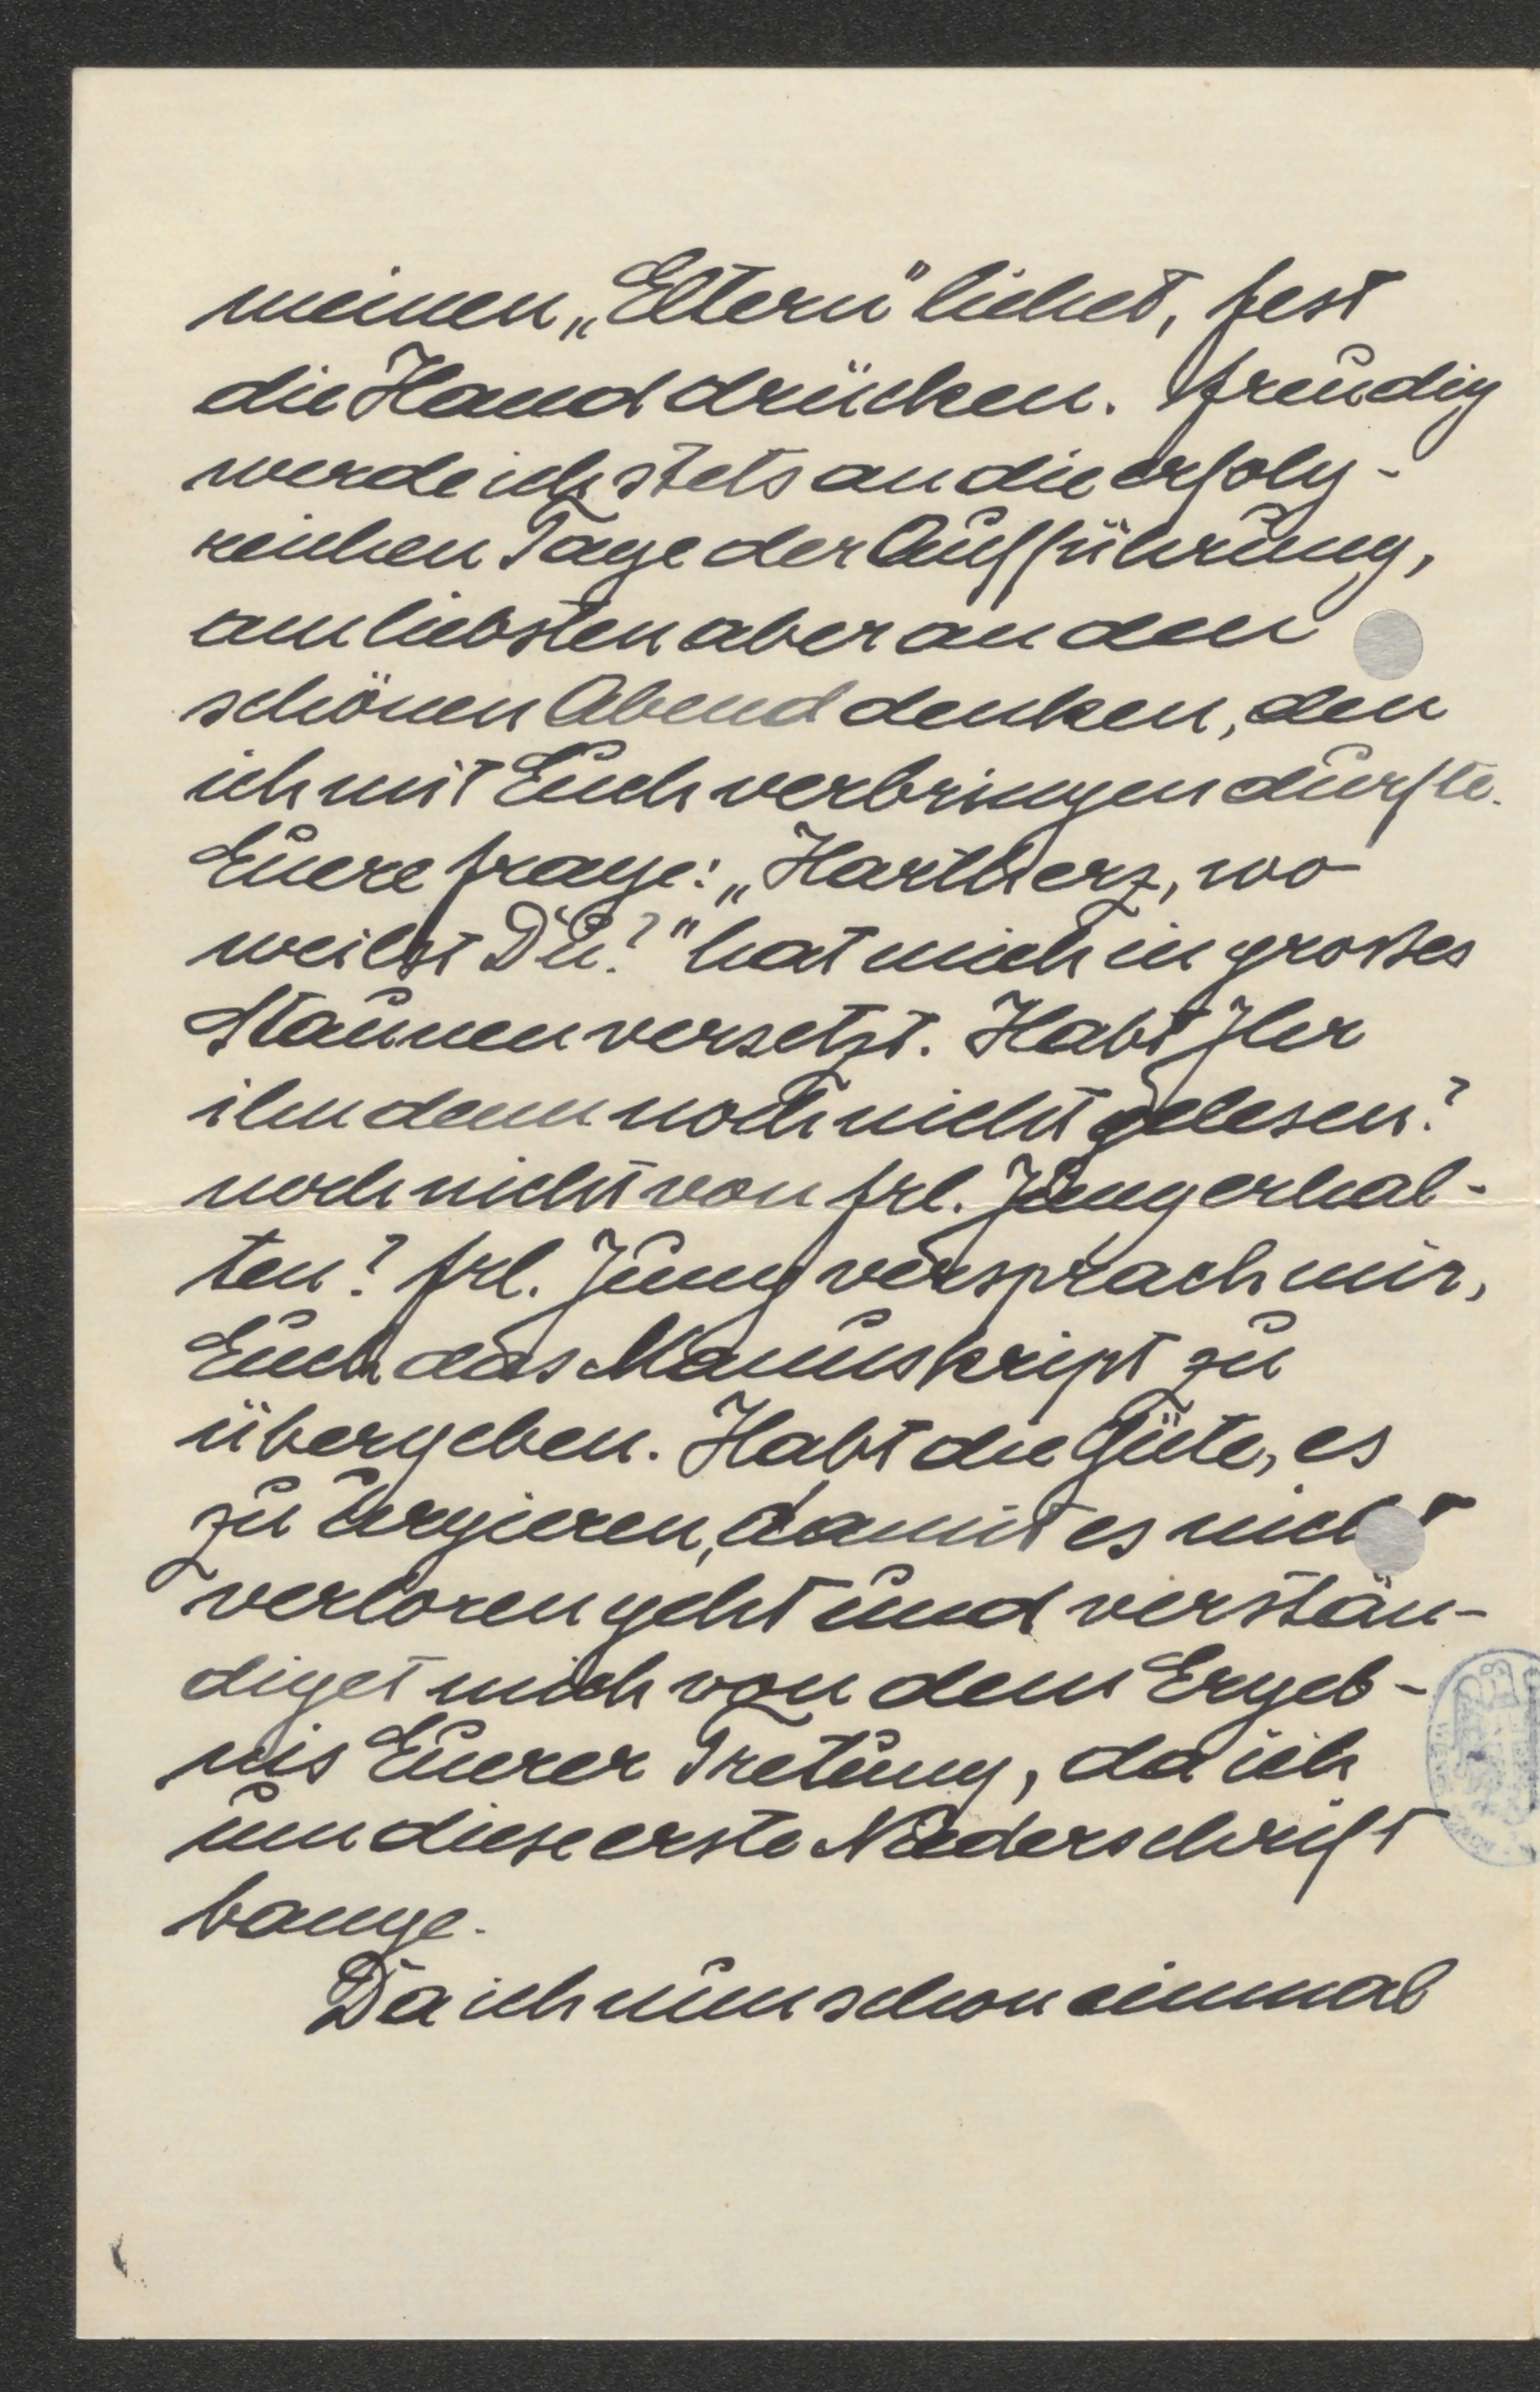 meinen „Eltern“ liehet, fest
die Hand drücken. Freudig
werde ich stets an die erfolg-
reichen Tage der Aufführung,
am liebsten aber an den
schönen Abend denken, den
ich mit Euch verbringen durfte.
Euere Frage: „Hartherz, wo
weilst Du?“ hat mich in großes
Staunen versetzt. Habt Ihr
ihn denn noch nicht gelesen?
noch nicht von Frl. Jung erhal-
ten? Frl. Jung versprach mir,
Euch das Manuskript zu
übergeben. Habt die Güte, es
zu urgieren, damit es nicht
verloren geht und verstän-
diget mich von dem Ergeb-
nis Euerer Tretung, da ich
um diese erste Niederschrift
bange.
Da ich nun schon einmal